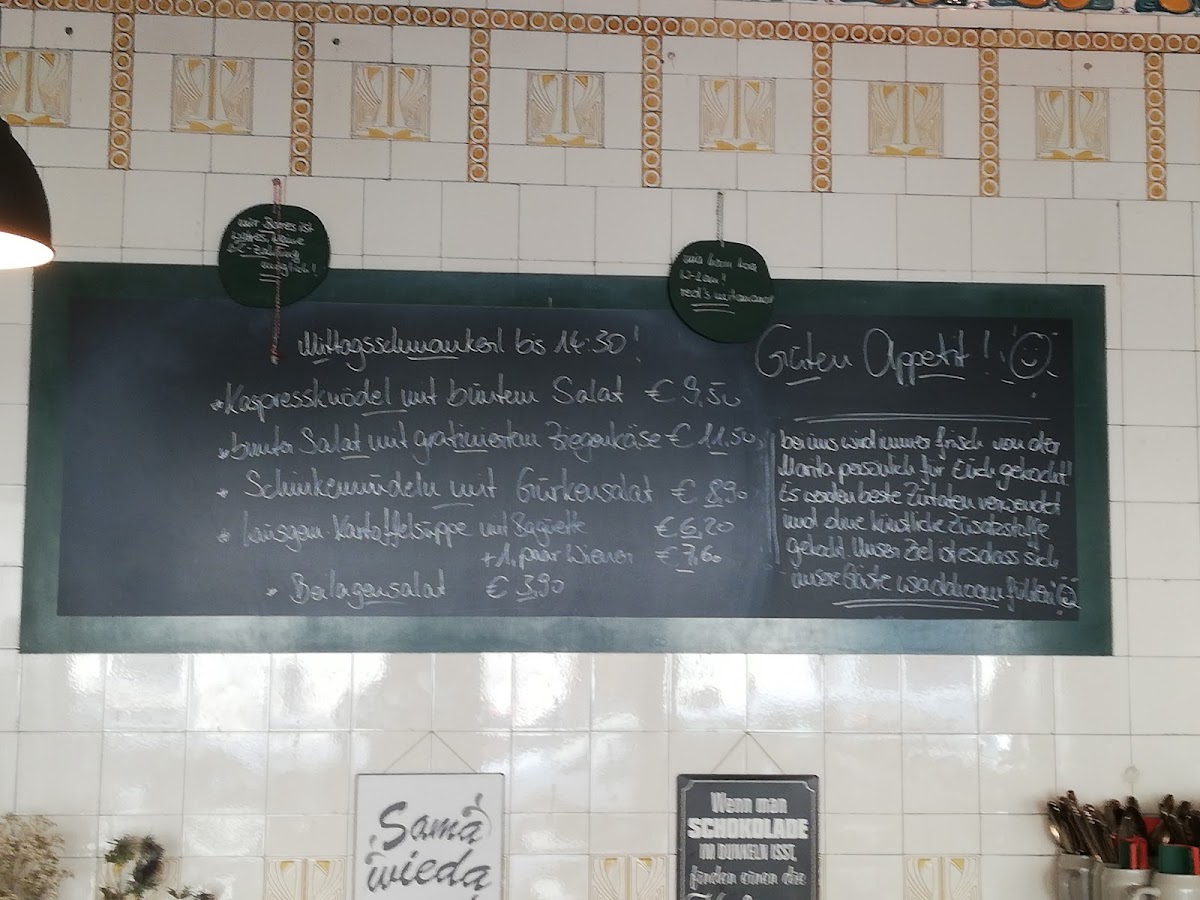 nur Bares ist
Wahres, keine
EC-Zahlung
möglich!
mia ham koa
W-Lan!
red's mitanand
Mittagsschmankerl bis 14:30!
*Kaspressknödel mit buntem Salat € 9,50
*bunter Salat mit gratiniertem Ziegenkäse € 11,50
* Schinkennudeln mit Gurkensalat € 8,90
* hausgem. Kartoffelsuppe mit Baguette € 6,20
+ 1 paar Wiener € 7,60
* Beilagensalat € 3,90
Guten Appetit!
bei uns wird immer frisch von der
Marita persönlich für Euch gekocht!
Es werden beste Zutaten verwendet
und ohne künstliche Zusatzstoffe
gekocht. Unser Ziel ist es dass sich
unsere Gäste fühlen
Sama
wieda
Wenn man
SCHOKOLADE
IM DUNKELN ISST,
finden einen die